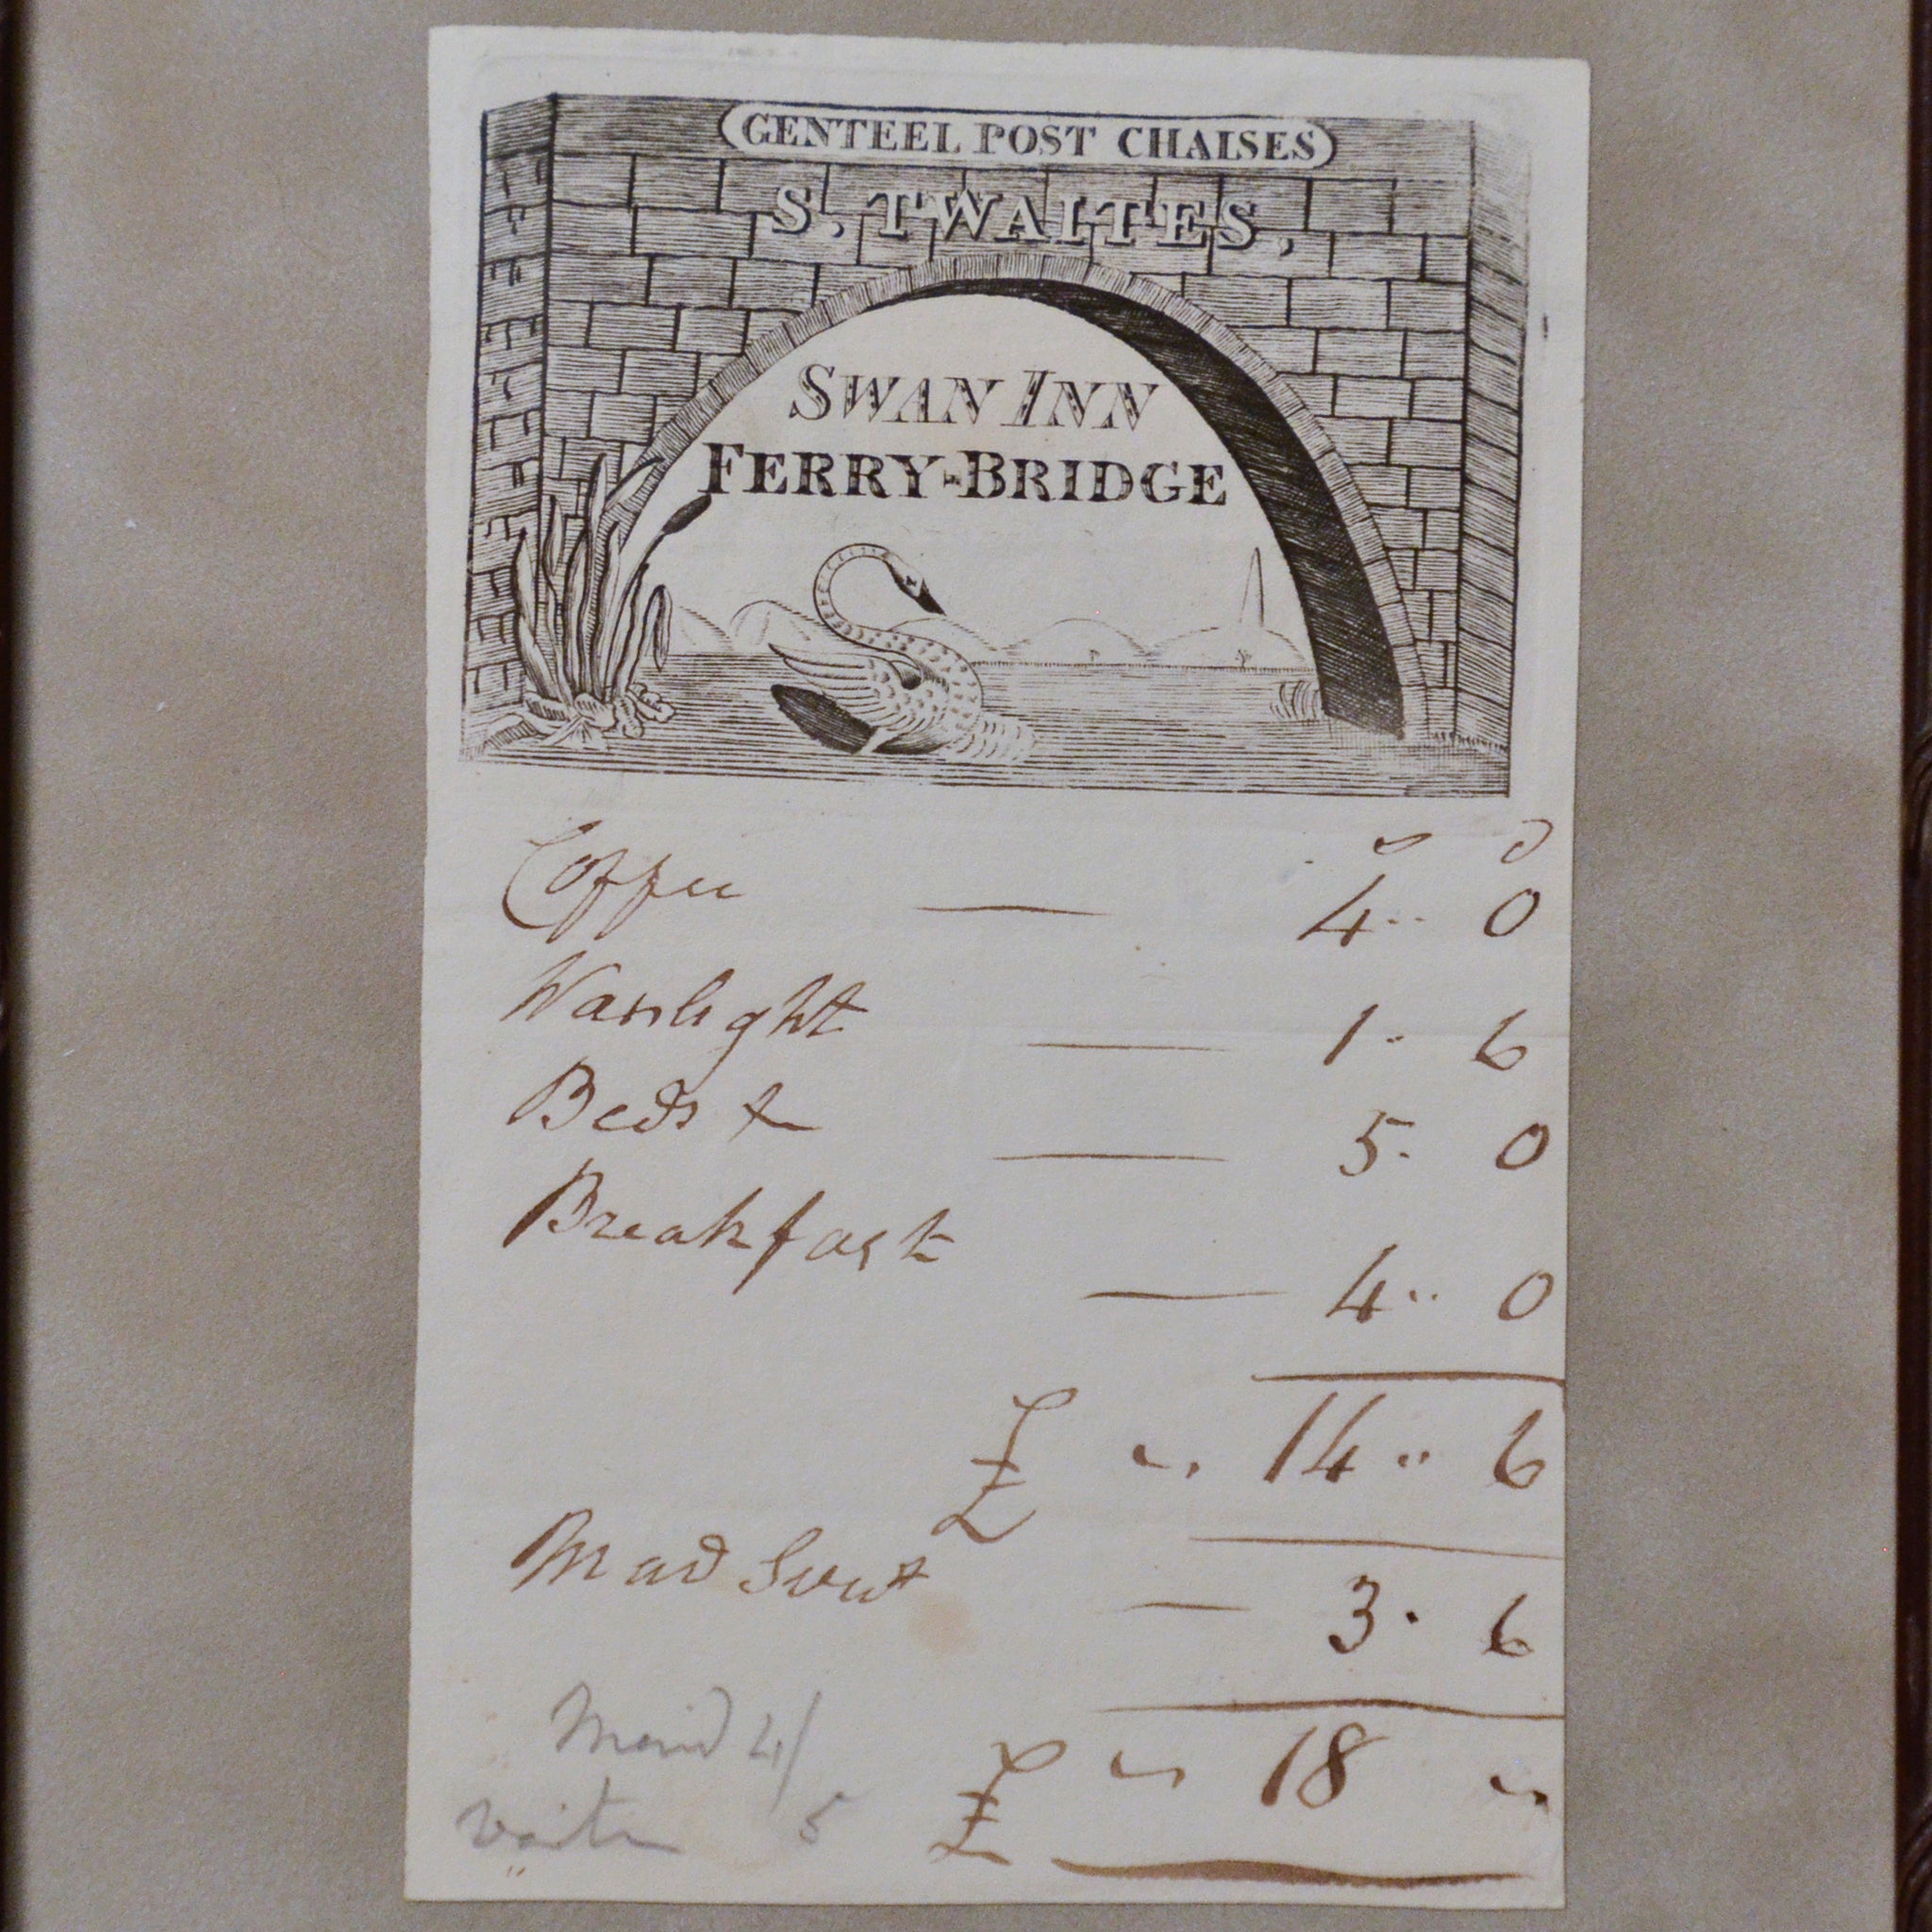 GENTEEL POST CHAISES
S. TWAITES,
SWAN INN
FERRY-BRIDGE
s d
Coffee — 4 .. 0
Waxlight — 1 . 6
Beds & — 5 . 0
Breakfast — 4 .. 0
£ " 14 .. 6
Maid Servt — 3 . 6
£ " 18 "
Maid 4/
waiter 5